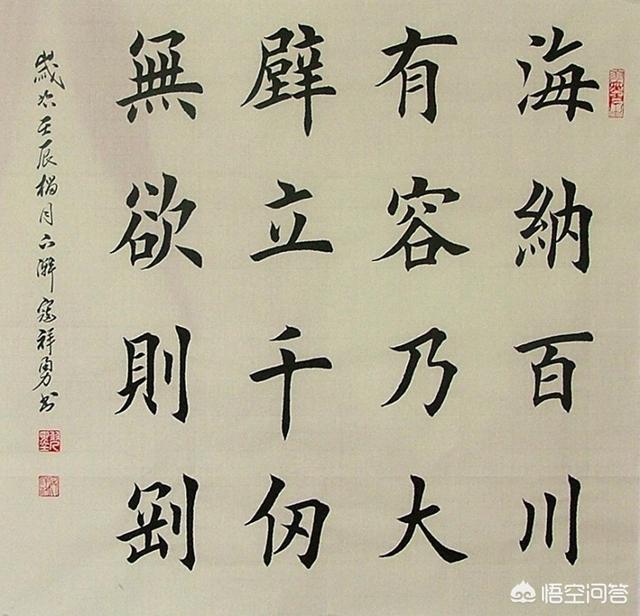 海納百川
有容乃大
壁立千仞
無欲則剛
歲次壬辰榴月下澣寇祥勇书
悟空问答